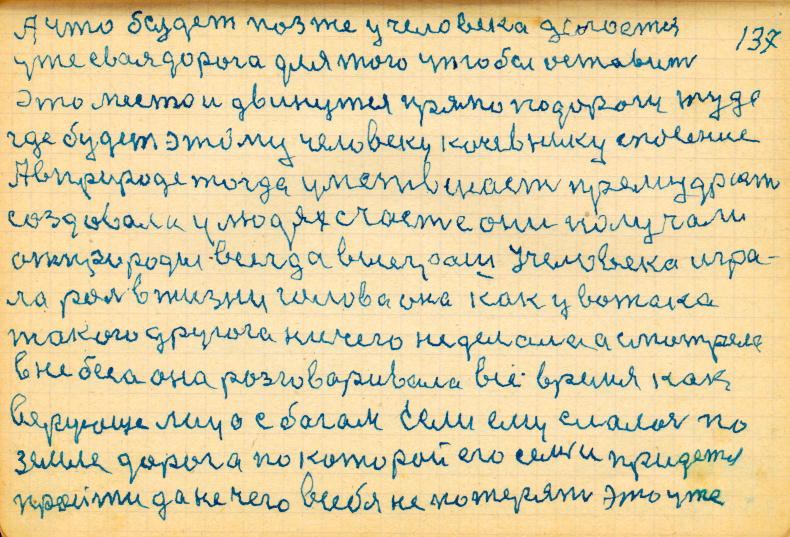 А что будет позже у человека
137
уже сваядорога для того чтобы оставит
это место и двинутся прямо по дороги туда
где будет этому человеку кочевнику споение
А в природе тогда
создовала у людях счасте они получали
от природы всегда выеграш Учеловека игра-
ла рол в жизни голова она как у вожака
такого другога ничего неделала а смотрела
в небеса она розговаривала все время как
верующе лицо с багам Если ему спалоя по
земле дорога по которой его семи придется
пройти да нечего всебя не потерят это уже